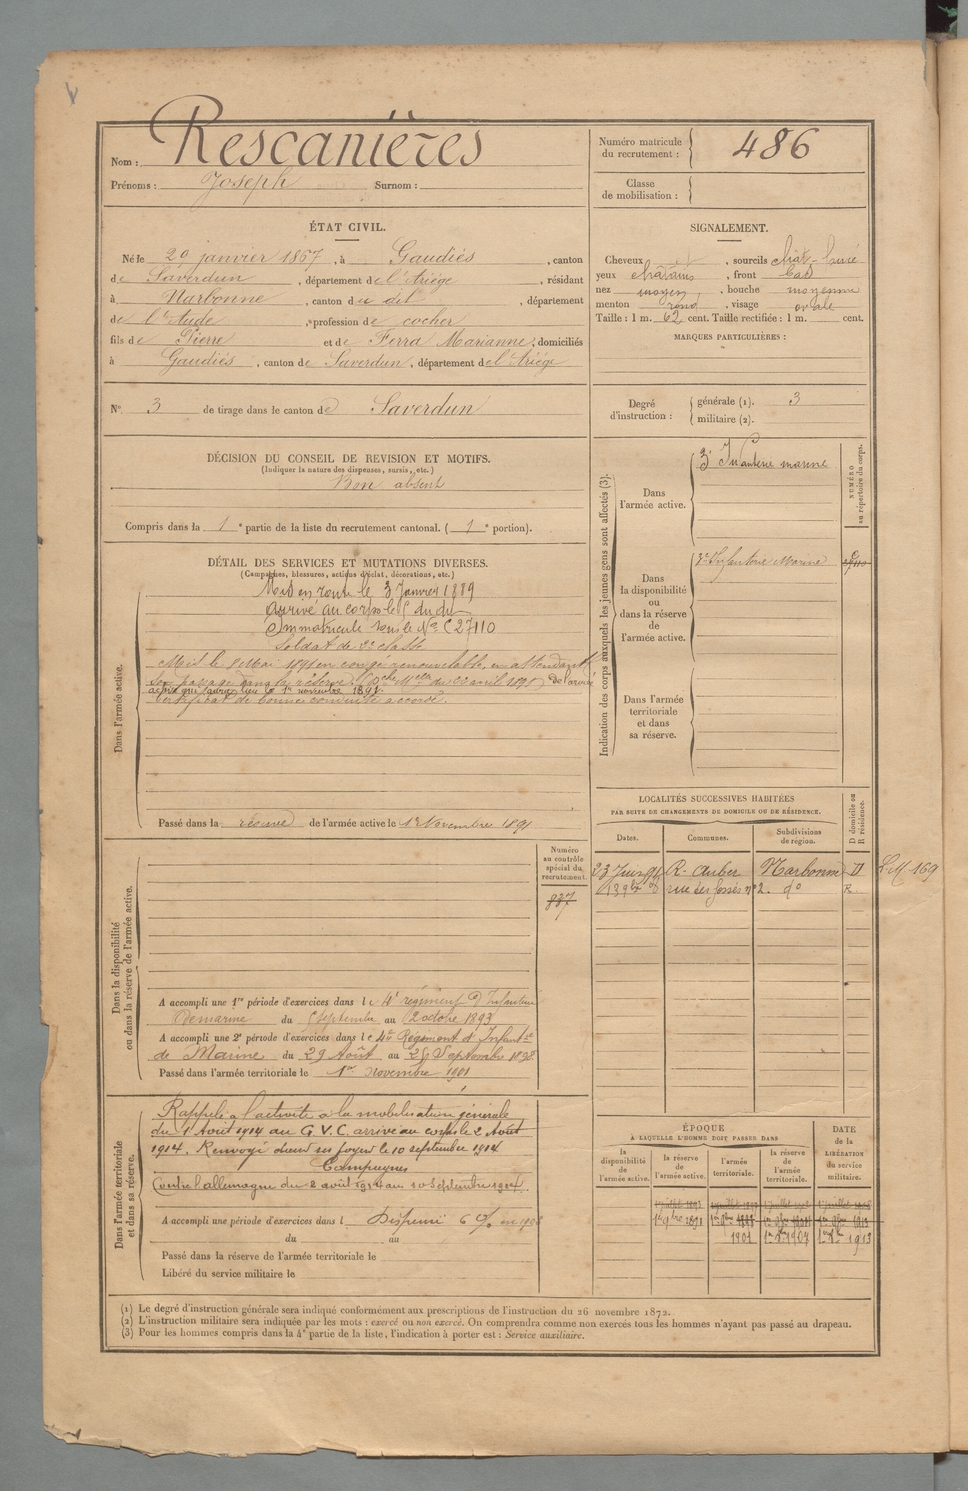 Nom : Rescanières
Prénoms : Joseph Surnom :
Numéro matricule
du recrutement : 486
Classe
de mobilisation :
ÉTAT CIVIL.
Né le 20 janvier 1867, à Gaudiés, canton
de Saverdun, département de l'Ariège, résidant
à Narbonne, canton du dit, département
de l'Aude, profession de cocher
fils de Pierre et de Ferra Marianne, domiciliés
à Gaudiés, canton de Saverdun, département de l'Ariège
N° 3 de tirage dans le canton de Saverdun
SIGNALEMENT.
Cheveux , sourcils chât-
yeux châtains, front bas
nez moyen, bouche moyenne
menton rond, visage ovale
Taille : 1 m. 62 cent. Taille rectifiée : 1 m. cent.
MARQUES PARTICULIÈRES :
Degré
d'instruction :
générale (1). 3
militaire (2).
DÉCISION DU CONSEIL DE REVISION ET MOTIFS.
(Indiquer la nature des dispenses, sursis, etc.)
Bon absent
Compris dans la 1e partie de la liste du recrutement cantonal. (1e portion).
DÉTAIL DES SERVICES ET MUTATIONS DIVERSES.
(Campagnes, blessures, actions d'éclat, décorations, etc.)
Dans l'armée active.
Mis en route le 3 Janvier 1889
arrivé au corps le 5 du dit
Immatriculé sous le N° C 27110
Soldat de 2e classe
Mis le 8 Mai 1891 en congé renouvelable, en attendant
son passage dans la réserve. du 22 avril 1891) de l'armée
active qui aura lieu le 1er novembre 1891.
Certificat de bonne conduite accordé.
Passé dans la réserve de l'armée active le 1er Novembre 1891
Indication des corps auxquels les jeunes gens sont affectés (3).
NUMÉRO
au répertoire du corps.
Dans
l'armée active.
3e Infanterie marine
Dans
la disponibilité
ou
dans la réserve
de
l'armée active.
3e Infanterie Marine
Dans l'armée
territoriale
et dans
sa réserve.
LOCALITÉS SUCCESSIVES HABITÉES
PAR SUITE DE CHANGEMENTS DE DOMICILE OU DE RÉSIDENCE.
Dates. Communes. Subdivisions
de région. D domicile ou
R résidence.
23 Juin 91 R. Auber Narbonne D
rue des fossés n° 2. d° R.
Dans la disponibilité
ou dans la réserve de l'armée active.
Numéro
au contrôle
spécial du
recrutement.
837
A accompli une 1re période d'exercices dans le 4e régiment d'Infanterie
de marine du 5 septembre au 2 octobre 1893
A accompli une 2e période d'exercices dans le 4e Régiment d'Infanterie
de Marine du 29 Août au 25 Septembre 1898
Passé dans l'armée territoriale le 1er novembre 1901
Dans l'armée territoriale
et dans sa réserve.
Rappelé à l'activité à la mobilisation générale
du 1 Août 1914 au G.V.C. arrivé au corps le 2 Août
1914. Renvoyé dans ses foyers le 10 septembre 1914
Campagnes
Contre l'allemagne du 2 août 1914 au 10 septembre 1914.
A accompli une période d'exercices dans l Dispensé
du au
Passé dans la réserve de l'armée territoriale le
Libéré du service militaire le
ÉPOQUE
À LAQUELLE L'HOMME DOIT PASSER DANS
la
disponibilité
de
l'armée active.
la réserve
de
l'armée active.
l'armée
territoriale.
la réserve
de
l'armée
territoriale.
DATE
de la
LIBÉRATION
du service
militaire.
1er 9bre 1891
1901 1er 9bre 1907 1er 9bre 1913
(1) Le degré d'instruction générale sera indiqué conformément aux prescriptions de l'instruction du 26 novembre 1872.
(2) L'instruction militaire sera indiquée par les mots : exercé ou non exercé. On comprendra comme non exercés tous les hommes n'ayant pas passé au drapeau.
(3) Pour les hommes compris dans la 4e partie de la liste, l'indication à porter est : Service auxiliaire.